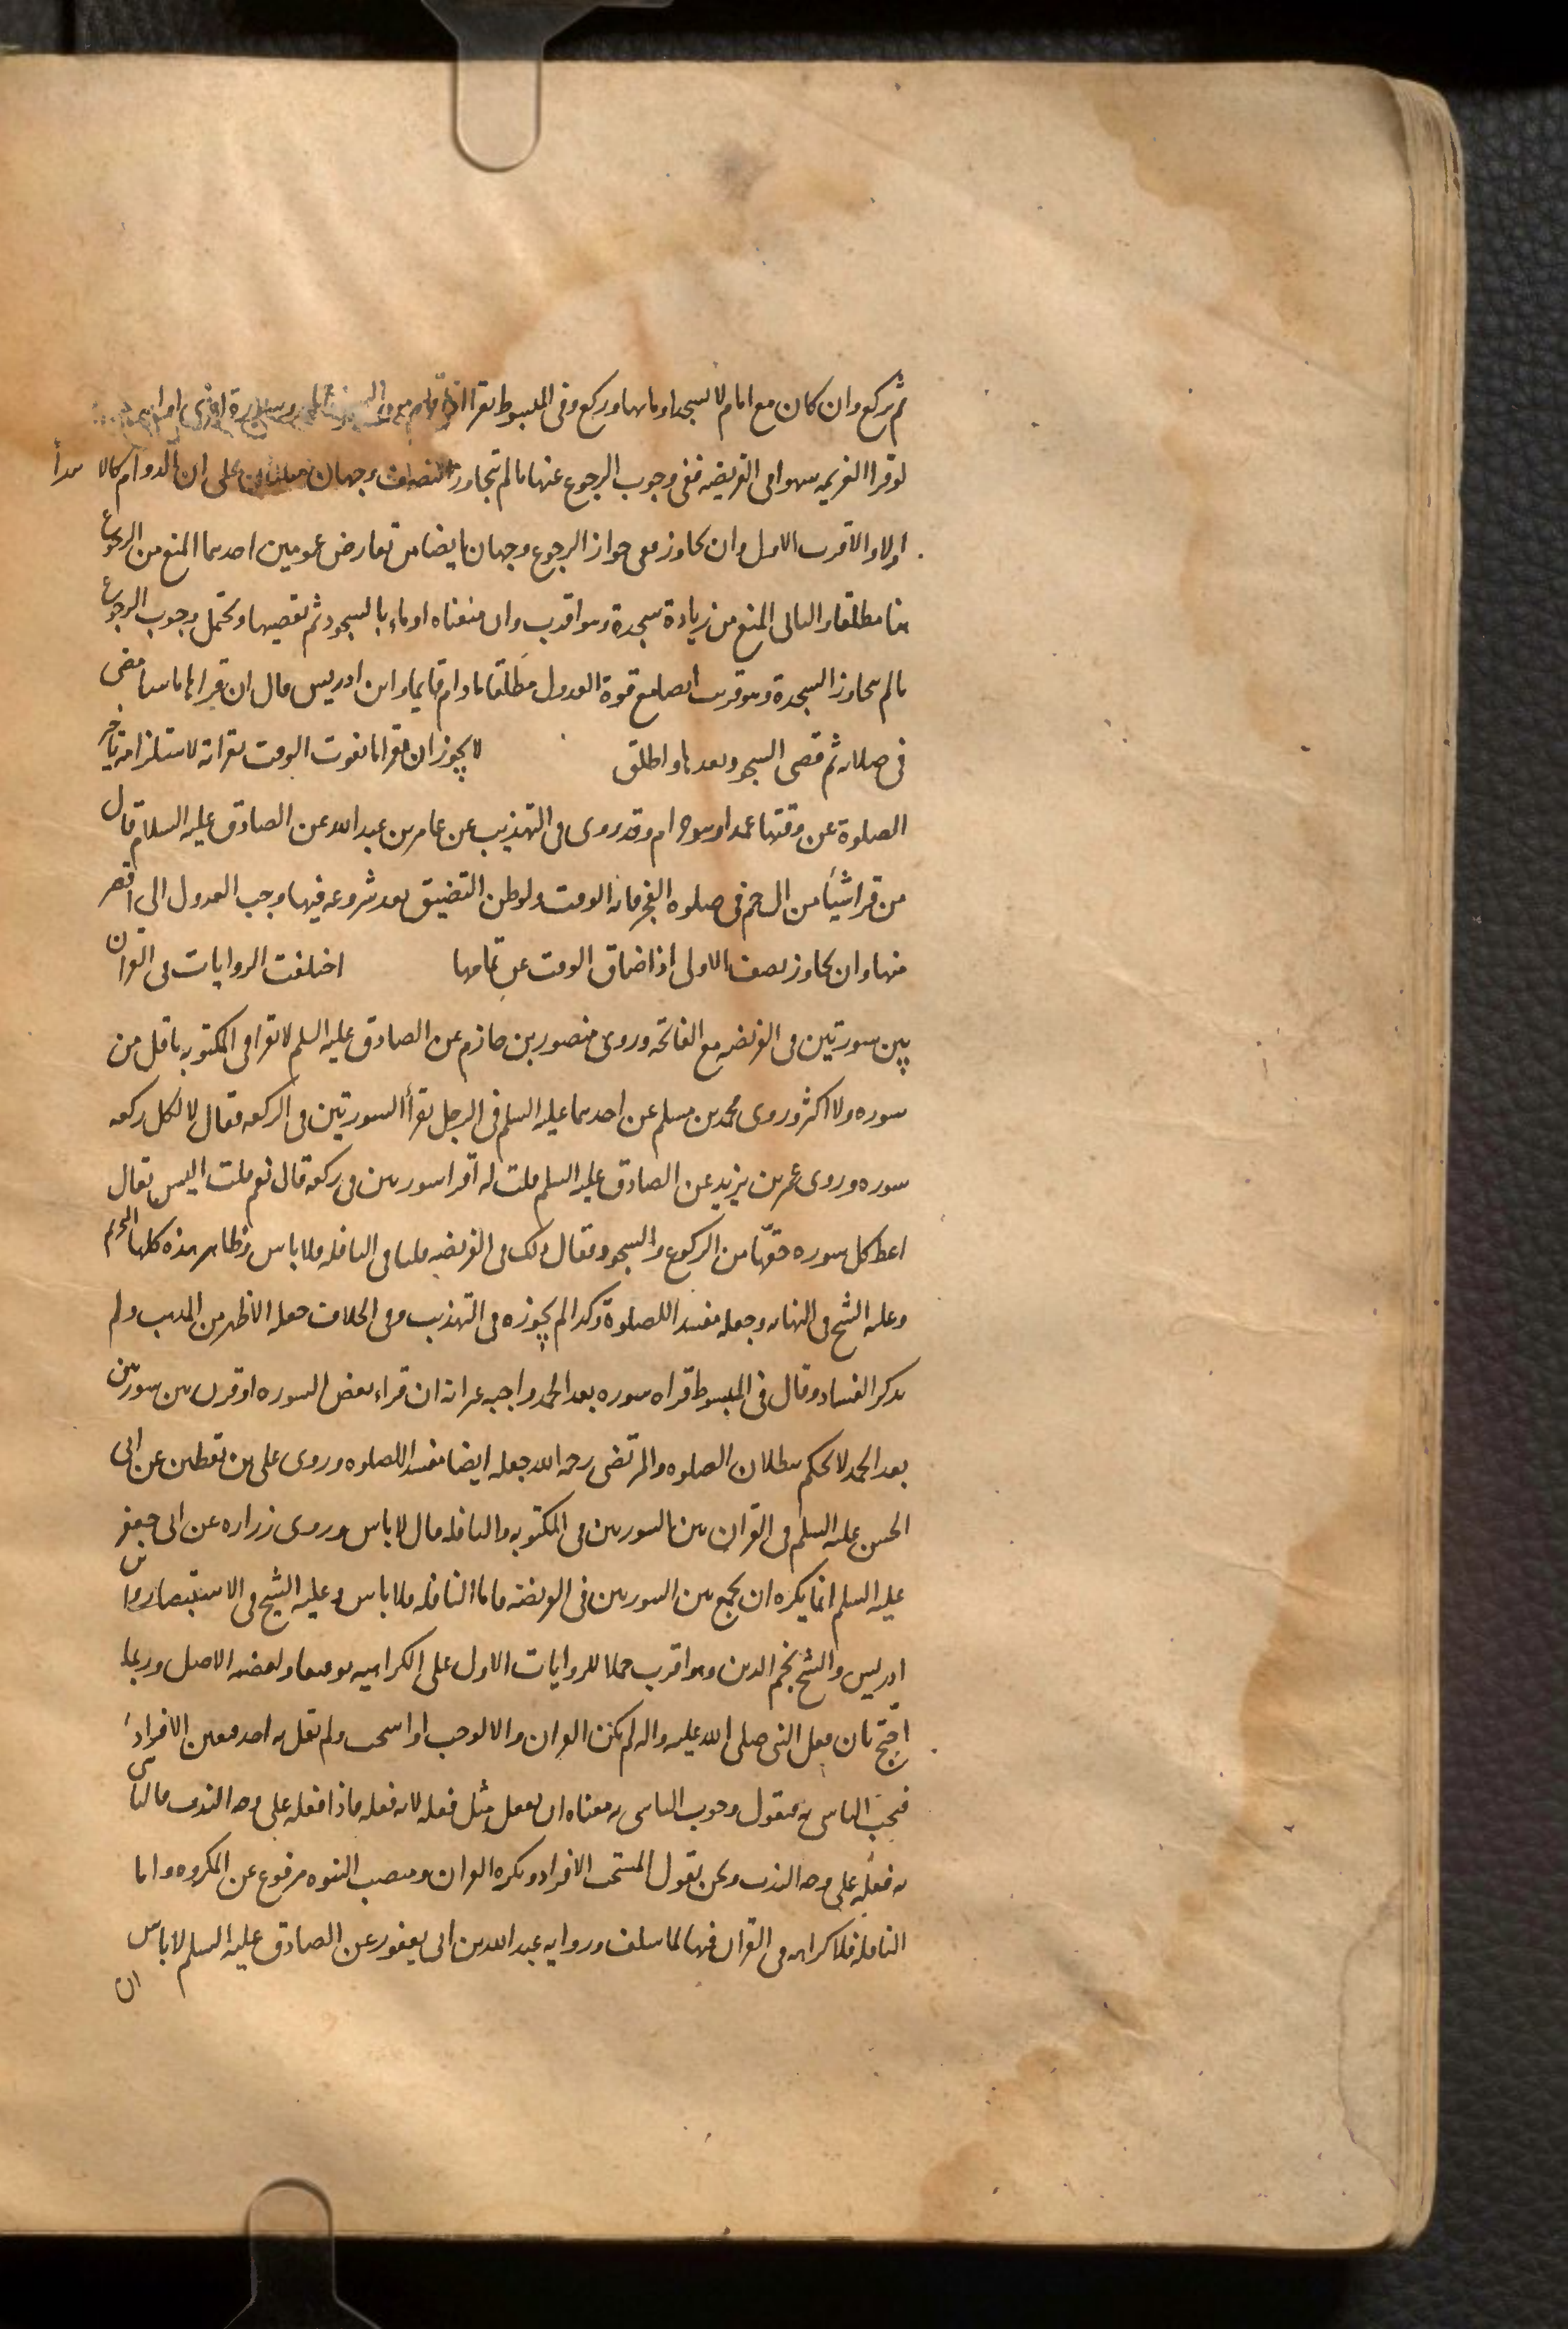 ثم يركع وان كان مع امام لا يسجد اومأ بها وركع وفي المبسوط يقرأ اذا قام من السجود الحمد وسورة اخرى او اية
لو قرا العزيمه سهوا في الفريضه ففي وجوب الرجوع عنها ما لم يتجاوز النصف وجهان مبنيان على ان الدوام كالابتدا
اولا والاقرب الاول وان تجاوز ففي جواز الرجوع وجهان ايضا من تعارض عمومين احدهما المنع من الرجوع
هنا مطلقا والثاني المنع من زيادة سجدة وهو اقرب وان منعناه اوماء بالسجود ثم يقضيها ويحتمل وجوب الرجوع
ما لم يتجاوز السجدة وهو قريب ايضا مع قوة العدول مطلقا ما دام قايما وابن ادريس قال ان قراها ناسيا مضى
في صلاته ثم قضى السجود بعدها واطلق لا يجوز ان يقرا ما يفوت الوقت بقراته لاستلزامه تاخير
الصلوة عن وقتها عمدا وهو حرام وقد روى في التهذيب عن عامر بن عبد الله عن الصادق عليه السلام قال
من قرا شيئا من ال حم في صلوه الفجر فاته الوقت ولو ظن التضيق بعد شروعه فيها وجب العدول الى اقصر
منها وان تجاوز نصف الاولى اذا ضاق الوقت عن تمامها اختلفت الروايات في القران
بين سورتين في الفريضه مع الفاتحه وروى منصور بن حازم عن الصادق عليه السلم لا تقرا في المكتوبه باقل من
سوره ولا اكثر وروى محمد بن مسلم عن احدهما عليه السلم في الرجل يقرأ السورتين في الركعه فقال لا لكل ركعه
سوره وروى عمر بن يزيد عن الصادق عليه السلم قلت له اقرا سورتين في ركعه قال نعم قلت اليس يقال
اعط كل سوره حقها من الركوع والسجود فقال ذلك في الفريضه فاما في النافله فلا باس وظاهر هذه كلها التحريم
وعليه الشيخ في النهايه وجعله مفسدا للصلوة وكذا لم يجوزه في التهذيب وفي الخلاف جعله الاظهر من المذهب ولم
يذكر الفساد وقال في المبسوط قراه سوره بعد الحمد واجبه غير انه ان قراء بعض السوره او قرن بين سورتين
بعد الحمد لا يحكم ببطلان الصلوه والمرتضى رحمه الله جعله ايضا مفسدا للصلوه وروى علي بن يقطين عن ابي
الحسن عليه السلم في القران بين السورتين في المكتوبه والنافله قال لا باس وروى زراره عن ابي جعفر
عليه السلم انما يكره ان يجمع بين السورتين في الفريضه فاما النافله فلا باس وعليه الشيخ في الاستبصار وابن
ادريس والشيخ نجم الدين وهو اقرب حملا للروايات الاول على الكراهيه توفيقا ويعضده الاصل وربما
احتج بان فعل النبي صلى الله عليه واله لم يكن القران والا لوجب او استحب ولم يقل به احد فتعين الافراد
فيجب التاسي به فنقول وجوب التاسي به معناه ان يفعل مثل فعله لانه فعله فاذا فعله على وجه الندب فالتاسي
به فعله على وجه الندب ونحن نقول المستحب الافراد ويكره القران ومنصب النبوه مرفوع عن المكروه واما
النافله فلا كراهه في القران فيها لما سلف وروايه عبد الله بن ابي يعفور عن الصادق عليه السلم لا باس
ان